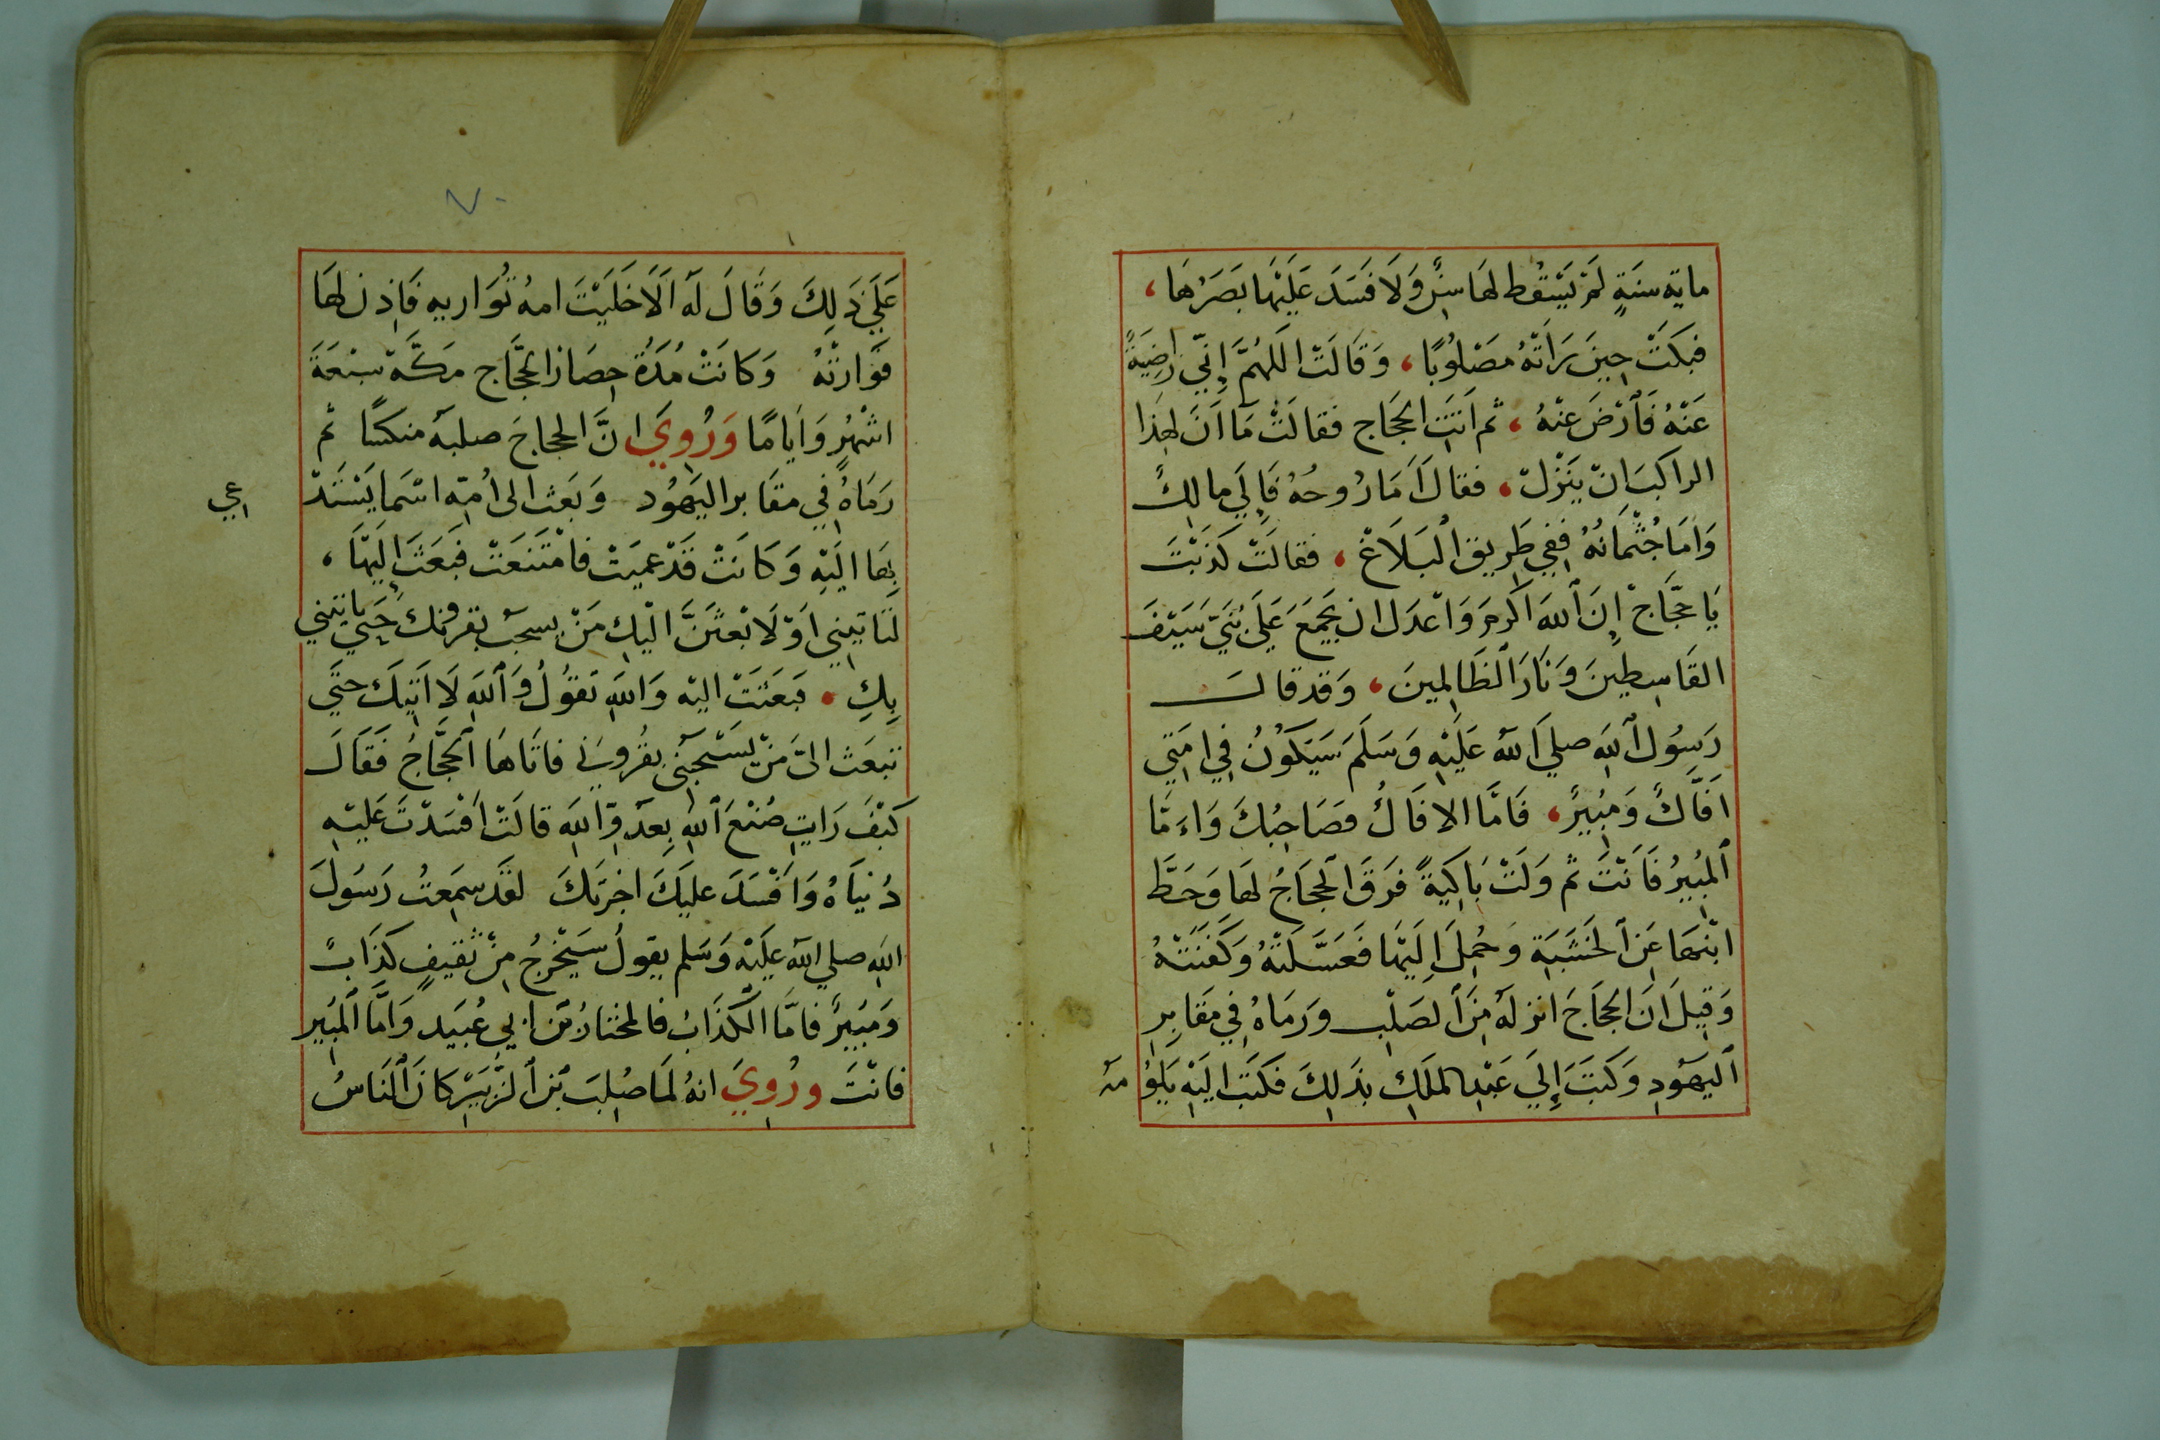 ماية سنةٍ لَمْ يَسْقُط لهَا سِنٌّ وَلَا فَسَدَ عَلَيْهَا بَصَرُهَا ،
فبَكَتْ حِينَ رَأَتْهُ مَصْلُوبًا ، وَقَالَتْ اللَهُمَّ إِنِّي رَاضِيَةٌ
عَنْهُ فَأَرْضَ عنْهُ ، ثم اَتَتِ الحجَاج فقالَتْ مَا اَنَ لِهَذا
الراكَبَ انْ يَنْزِلَ ، فقالَ اَمَا رُوحُهُ فَإِلَي مالِكٍ
وَاَمَا جُثْمَانُهُ فَفِي طَرِيق الْبَلَاغْ ، فقالَتْ كَذَبْتَ
يَا حجَّاجْ إِنَ اللهَ اَكْرمَ وَاعْدَل ان يَجْمَعَ عَلَى بُنَيَّ سَيْفَ
القَاسِطِينَ وَنَارَ الظَالمِينَ ، وَقد قالَ
رَسُول اللهَ صلي اَللهُ عَلَيْهِ وَسَلَمَ سَيَكُوْنُ فِي امَتِي
اَفَّاكٌ وَمُبِيرٌ ، فَامَّا الافَاكُ فصَاحِبُكَ وَاءَمَّا
اَلمُبِيرُ فَاَنْتَ ثم وَلَتْ بَاكِيَةً فَرَقَ الحجَاجُ لهَا وَحَطَّ
ابْنهَا عَنِ الخَشَبَةِ وَحُمِلَ اِلَيْهَا فَغَسَّلَتْهُ وَكَفَنَتْهُ
وَقِيلَ اَنَ الحجَاجَ انزلَهُ مِنَ الصَلْبِ وَرَمَاهُ فِي مَقَابِرِ
اَليَهُودِ وَكَتَبَ إِلَي عَبْدِ الملَكِ بذَلِكَ فكَتَبَ اِلَيْهِ يَلُوْ
مُهُ
٧٠
عَلَي ذَلِكَ وَقَالَ لَهُ اَلَا خَلَيْتَ امهُ تُوَاريهِ فَاِذن لهَا
فوَارتْهُ وَكانَتْ مُدَةُ حِصَار الحجَّاج مَكَّةَ سبْعَةَ
اشْهُرٍ وَاَيامًا وَرُوِيَ انَّ الحجاجَ صلبهُ منكسًا ثم
رَمَاهُ فِي مقَابر اليَهُود وَبَعث الى اُمّهِ اسْمَا يَسْتَدْ
عي
بِهَا اليَهِ وَكَانَتْ قَدْ عميَتْ فامْتَنَعَتْ فَبَعَثَ إِلَيْهَا ،
لتَاتيني اوْ لَابْعثَنَّ اليكِ مَنْ يسحبُ بقرونكِ حَتي ياتيني
بِكِ ، فبَعَثَتْ اليْهِ وَاللهِ تقوُلُ وَاللهَ لَا اَتَيكَ حتَّي
تبعَث اليّ مَنْ يسْحَبُني بقُروني فاتَاهَا الحجَّاجُ فقَالَ
كَيْفَ رَايتِ صُنْعَ اللهِ بِعَدوِّ اللهَ قالَتْ اَفْسَدْتَ عَليْهِ
دُنيَاهُ وَاَفْسَدَ عليَكَ اخرتَكَ لقَد سِمَعتُ رَسُولَ
اللهِ صلي اللهُ عليَهِ وَسَلم يقولُ سَيَخْرجُ مِنْ ثقيفٍ كَذَابٌ
وَمُبِيرٌ فامَّا الْكَذَابْ فالمختارُ بْن ابي عُبَيد وَامَّا المُبِير
فانْتَ ورُوِيَ انهُ لَما صُلِبَ بْن الزبَيْرِ كَانَ اَلنَاسُ